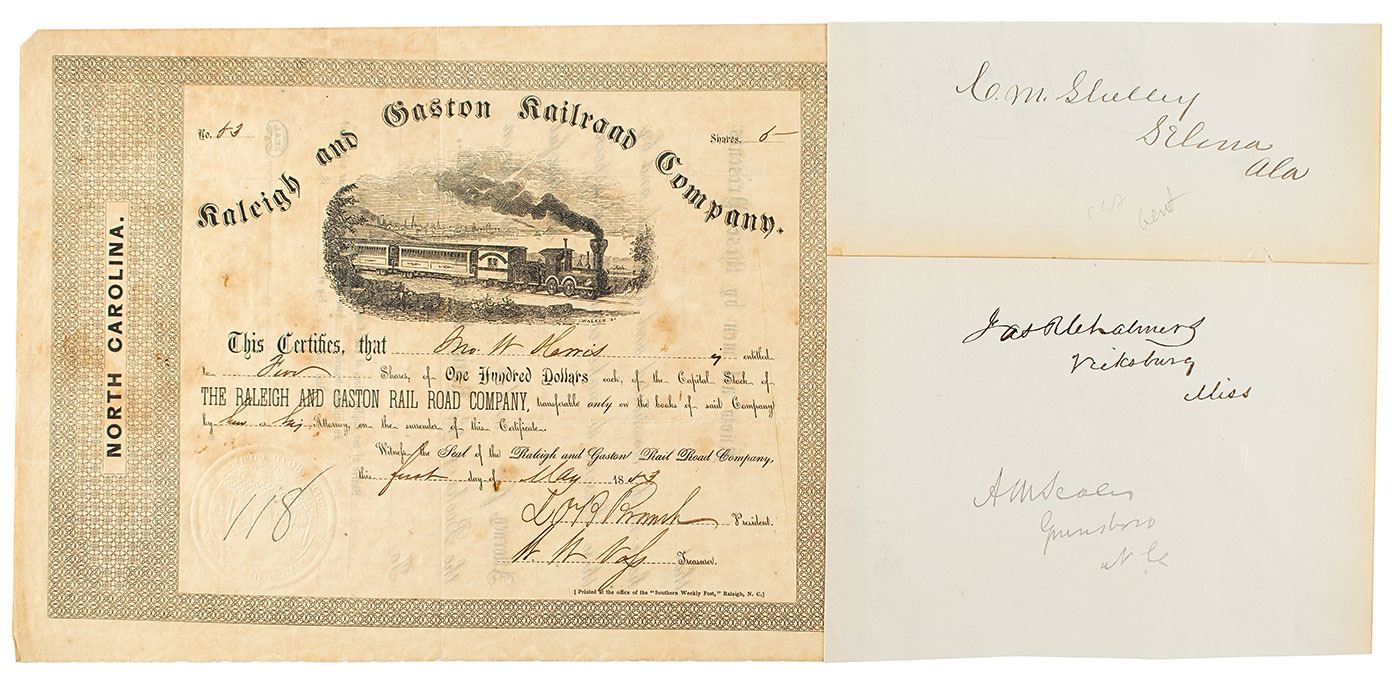 No. 53
Shares. 5
Raleigh and Gaston Railroad Company.
NORTH CAROLINA.
WALKER SC
This Certifies, that Jno. W. Harris is entitled
to Five Shares, of One Hundred Dollars each, of the Capital Stock of
THE RALEIGH AND GASTON RAIL ROAD COMPANY, transferable only on the books of said Company
by him or his Attorney, on the surrender of this Certificate.
Witness the Seal of the Raleigh and Gaston Rail Road Company,
this first day of May 1853
118
L O'B Branch President.
W. W. Vass Treasurer.
[Printed at the office of the "Southern Weekly Post," Raleigh, N. C.]
C. M. Shelley
Selma
Ala
Jas R Chalmers
Vicksburg
Miss
A M Scales
Greensboro
N. Ca